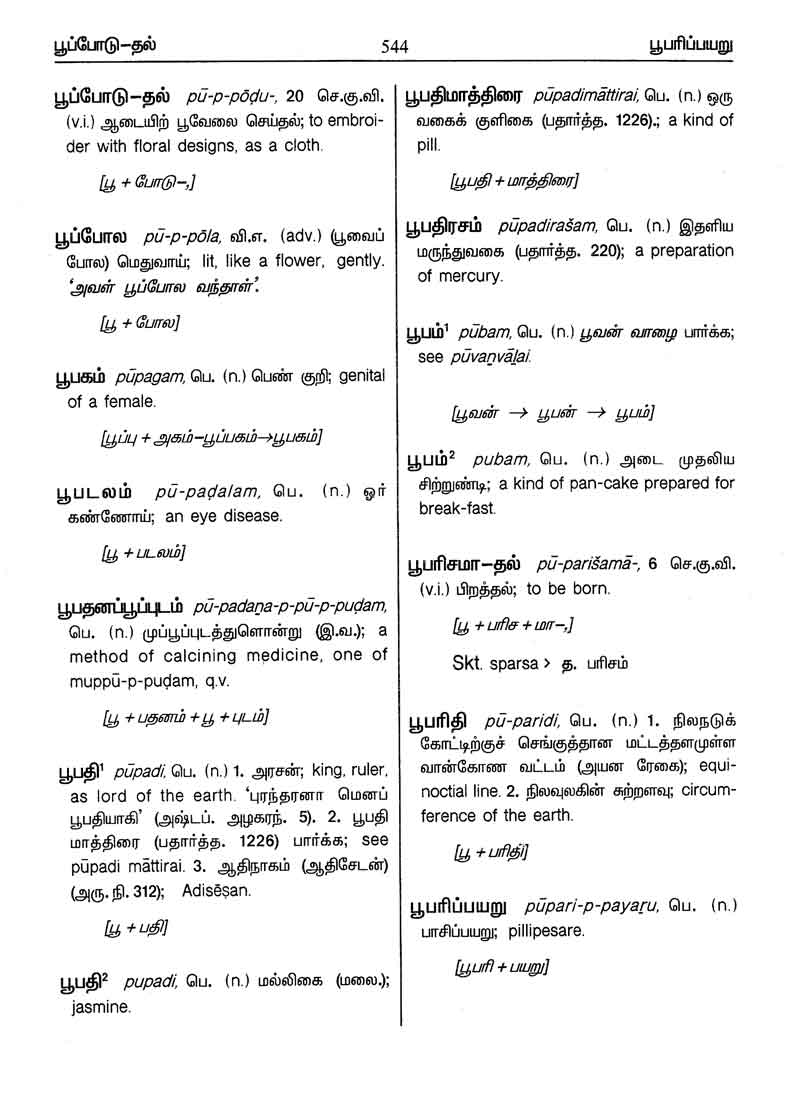 பூப்போடு–தல்
544
பூபரிப்பயறு
பூப்போடு–தல் pū-p-pōḍu-, 20 செ.கு.வி.
(v.i.) ஆடையிற் பூவேலை செய்தல்; to embroi-
der with floral designs, as a cloth.
[பூ + போடு–,]
பூப்போல pū-p-pōla, வி.எ. (adv.) (பூவைப்
போல) மெதுவாய்; lit, like a flower, gently.
‘அவள் பூப்போல வந்தாள்’.
[பூ + போல]
பூபகம் pūpagam, பெ. (n.) பெண் குறி; genital
of a female.
[பூப்பு + அகம்–பூப்பகம்→பூபகம்]
பூபடலம் pū-paḍalam, பெ. (n.) ஓர்
கண்ணோய்; an eye disease.
[பூ + படலம்]
பூபதனப்பூப்புடம் pū-padaṉa-p-pū-p-puḍam,
பெ. (n.) முப்பூப்புடத்துளொன்று (இ.வ.); a
method of calcining medicine, one of
muppū-p-puḍam, q.v.
[பூ + பதனம் + பூ + புடம்]
பூபதி¹ pūpadi, பெ. (n.) 1. அரசன்; king, ruler,
as lord of the earth. ‘புரந்தரனா மெனப்
பூபதியாகி’ (அஷ்டப். அழகரந். 5). 2. பூபதி
மாத்திரை (பதார்த்த. 1226) பார்க்க; see
pūpadi māttirai. 3. ஆதிநாகம் (ஆதிசேடன்)
(அரு. நி. 312); Adisēṣan.
[பூ + பதி]
பூபதி² pupadi, பெ. (n.) மல்லிகை (மலை.);
jasmine.
பூபதிமாத்திரை pūpadimāttirai, பெ. (n.) ஒரு
வகைக் குளிகை (பதார்த்த. 1226).; a kind of
pill.
[பூபதி + மாத்திரை]
பூபதிரசம் pūpadirašam, பெ. (n.) இதளிய
மருந்துவகை (பதார்த்த. 220); a preparation
of mercury.
பூபம்¹ pūbam, பெ. (n.) பூவன் வாழை பார்க்க;
see pūvaṉvāḻai.
[பூவன் → பூபன் → பூபம்]
பூபம்² pubam, பெ. (n.) அடை முதலிய
சிற்றுண்டி; a kind of pan-cake prepared for
break-fast.
பூபரிசமா–தல் pū-parišamā-, 6 செ.கு.வி.
(v.i.) பிறத்தல்; to be born.
[பூ + பரிச + மா–,]
Skt. sparsa > த. பரிசம்
பூபரிதி pū-paridi, பெ. (n.) 1. நிலநடுக்
கோட்டிற்குச் செங்குத்தான மட்டத்தளமுள்ள
வான்கோண வட்டம் (அயன ரேகை); equi-
noctial line. 2. நிலவுலகின் சுற்றளவு; circum-
ference of the earth.
[பூ + பரிதி]
பூபரிப்பயறு pūpari-p-payaṟu, பெ. (n.)
பாசிப்பயறு; pillipesare.
[பூபரி + பயறு]